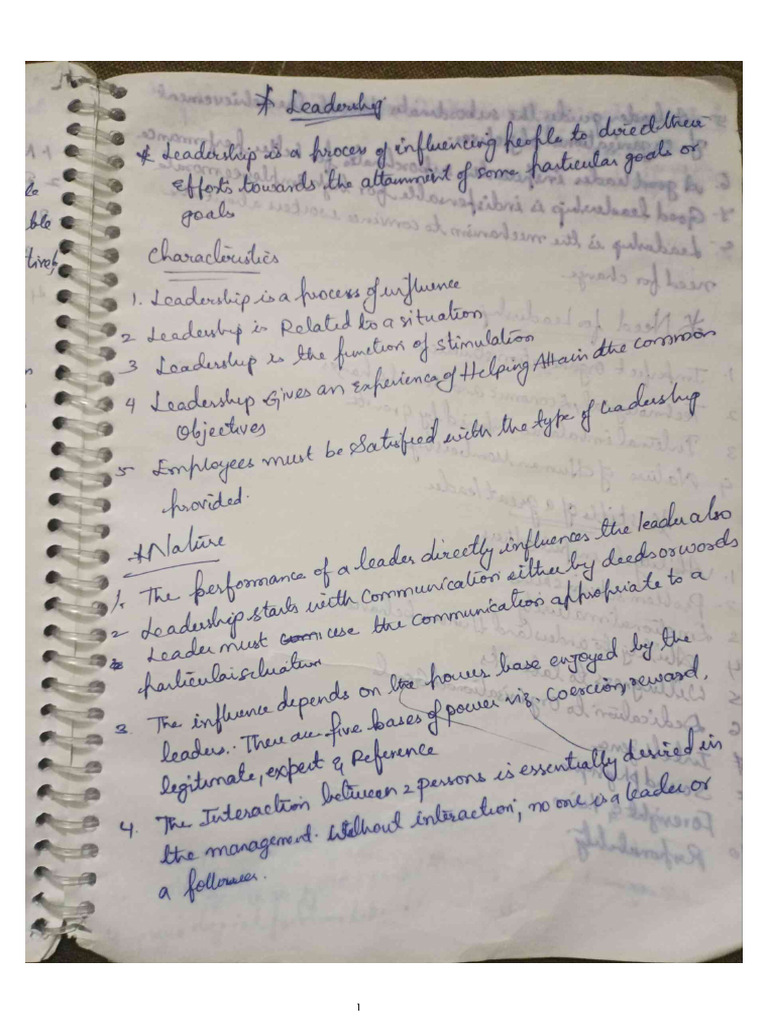 * Leadership
* Leadership is a process of influencing people to direct their
efforts towards the attainment of some particular goals or
goals
Characteristics
1. Leadership is a process of influence
2 Leadership is Related to a situation
3 Leadership is the function of stimulation
4 Leadership Gives an Experience of Helping Attain the common
Objectives
5 Employees must be Satisfied with the type of leadership
provided.
* Nature
1. The performance of a leader directly influences the leader also
2 Leadership starts with communication either by deeds or words
Leader must use the communication appropriate to a
particular situation
3. The influence depends on the power base enjoyed by the
leaders. There are five bases of power viz. coercion, reward,
legitimate, expert & Reference
4. The Interaction between 2 persons is essentially desired in
the management. Without interaction, no one is a leader or
a follower.
ble
tive,
1